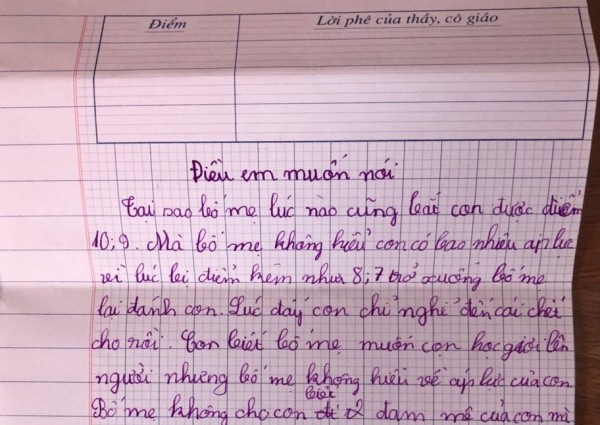 Điểm
Lời phê của thầy, cô giáo
Điều em muốn nói
Tại sao bố mẹ lúc nào cũng bắt con được điểm
10; 9. Mà bố mẹ không hiểu con có bao nhiêu áp lực
vì lúc bị điểm kém như 8; 7 trở xuống bố mẹ
lại đánh con. Lúc đấy con chỉ nghĩ đến cái chết
cho rồi. Con biết bố mẹ muốn con học giỏi lên
người nhưng bố mẹ không hiểu về áp lực của con
Bố mẹ không cho con biết đam mê của con mà